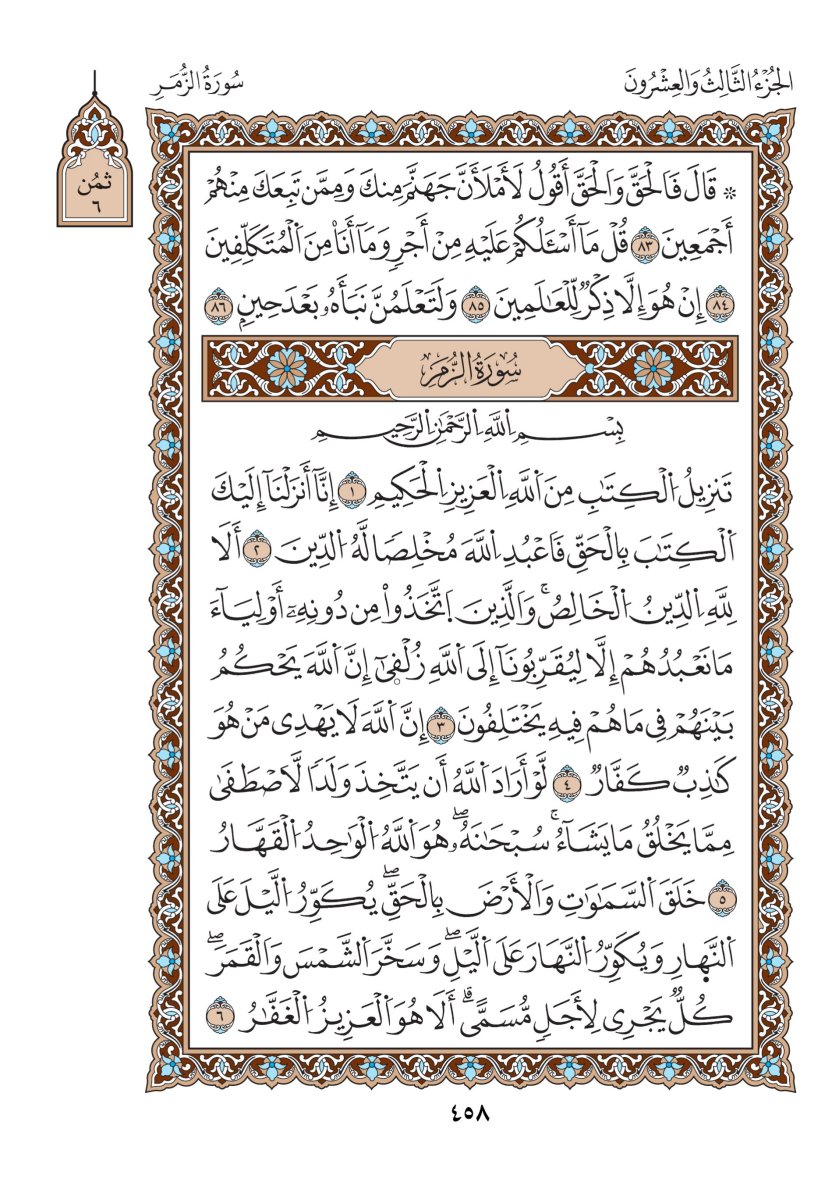 الجُزْءُ الثَّالِثُ وَالعِشْرُونَ
سُورَةُ الزُّمَرِ
ثمُن
٦
۞ قَالَ فَالْحَقَّ وَالْحَقَّ أَقُولُ لَأَمْلَأَنَّ جَهَنَّمَ مِنكَ وَمِمَّن تَبِعَكَ مِنْهُمْ
أَجْمَعِينَ ٨٣ قُلْ مَآ أَسْـَٔلُكُمْ عَلَيْهِ مِنْ أَجْرٍ وَمَآ أَنَا۠ مِنَ اَلْمُتَكَلِّفِينَ
٨٤ إِنْ هُوَ إِلَّا ذِكْرٌ لِّلْعَٰلَمِينَ ٨٥ وَلَتَعْلَمُنَّ نَبَأَهُۥ بَعْدَ حِينٍ ٨٦
سُورَةُ الزُّمَرِ
بِسْمِ اِللَّهِ اِلرَّحْمَٰنِ اِلرَّحِيمِ
تَنزِيلُ اُلْكِتَٰبِ مِنَ اَللَّهِ اِلْعَزِيزِ اِلْحَكِيمِ ١ إِنَّآ أَنزَلْنَآ إِلَيْكَ
اَلْكِتَٰبَ بِالْحَقِّ فَاعْبُدِ اِللَّهَ مُخْلِصًا لَّهُ اُلدِّينَ ٢ أَلَا
لِلَّهِ اِلدِّينُ اُلْخَالِصُۚ وَالَّذِينَ اَتَّخَذُوا۟ مِن دُونِهِۦٓ أَوْلِيَآءَ
مَا نَعْبُدُهُمْ إِلَّا لِيُقَرِّبُونَآ إِلَى اَللَّهِ زُلْفَىٰٓ إِنَّ اَللَّهَ يَحْكُمُ
بَيْنَهُمْ فِي مَا هُمْ فِيهِ يَخْتَلِفُونَ ٣ إِنَّ اَللَّهَ لَا يَهْدِي مَنْ هُوَ
كَٰذِبٌ كَفَّارٌ ٤ لَّوْ أَرَادَ اَللَّهُ أَن يَتَّخِذَ وَلَدًا لَّاصْطَفَىٰ
مِمَّا يَخْلُقُ مَا يَشَآءُۚ سُبْحَٰنَهُۥۖ هُوَ اَللَّهُ اُلْوَٰحِدُ اُلْقَهَّارُ
٥ خَلَقَ اَلسَّمَٰوَٰتِ وَالْأَرْضَ بِالْحَقِّۖ يُكَوِّرُ اُلَّيْلَ عَلَى
اَلنَّهٰارِ وَيُكَوِّرُ اُلنَّهَارَ عَلَى اَلَّيْلِۖ وَسَخَّرَ اَلشَّمْسَ وَالْقَمَرَۖ
كُلٌّ يَجْرِي لِأَجَلٍ مُّسَمًّىۗ أَلَا هُوَ اَلْعَزِيزُ اُلْغَفَّٰرُ ٦
٤٥٨